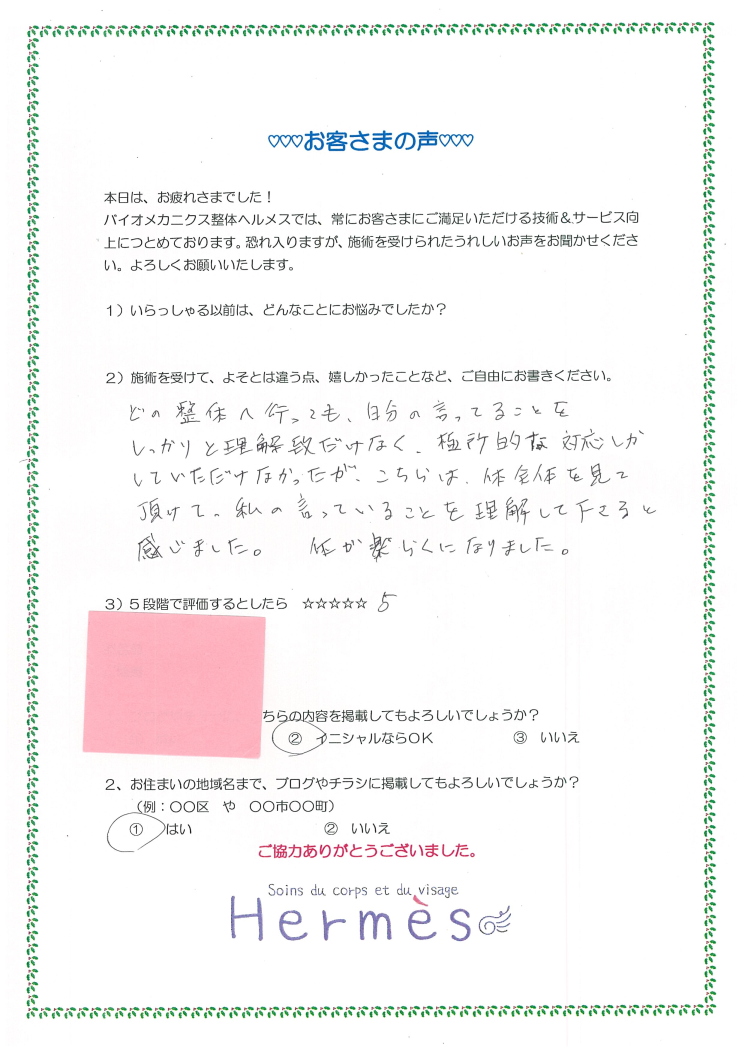 ♡♡♡お客さまの声♡♡♡
本日は、お疲れさまでした！
バイオメカニクス整体ヘルメスでは、常にお客さまにご満足いただける技術＆サービス向
上につとめております。恐れ入りますが、施術を受けられたうれしいお声をお聞かせくださ
い。よろしくお願いいたします。
１）いらっしゃる以前は、どんなことにお悩みでしたか？
２）施術を受けて、よそとは違う点、嬉しかったことなど、ご自由にお書きください。
どの整体へ行っても、自分の言ってることを
しっかりと理解だけなく、極所的な対応しか
していただけなかったが、こちらは、体全体を見て
頂けて。私の言っていることを理解して下さると
感じました。　体が楽らくになりました。
３）５段階で評価するとしたら　☆☆☆☆☆ 5
ちらの内容を掲載してもよろしいでしょうか？
②　イニシャルならＯＫ　③　いいえ
２、お住まいの地域名まで、ブログやチラシに掲載してもよろしいでしょうか？
（例：〇〇区　や　〇〇市〇〇町）
①　はい　②　いいえ
ご協力ありがとうございました。
Soins du corps et du visage
Hermès